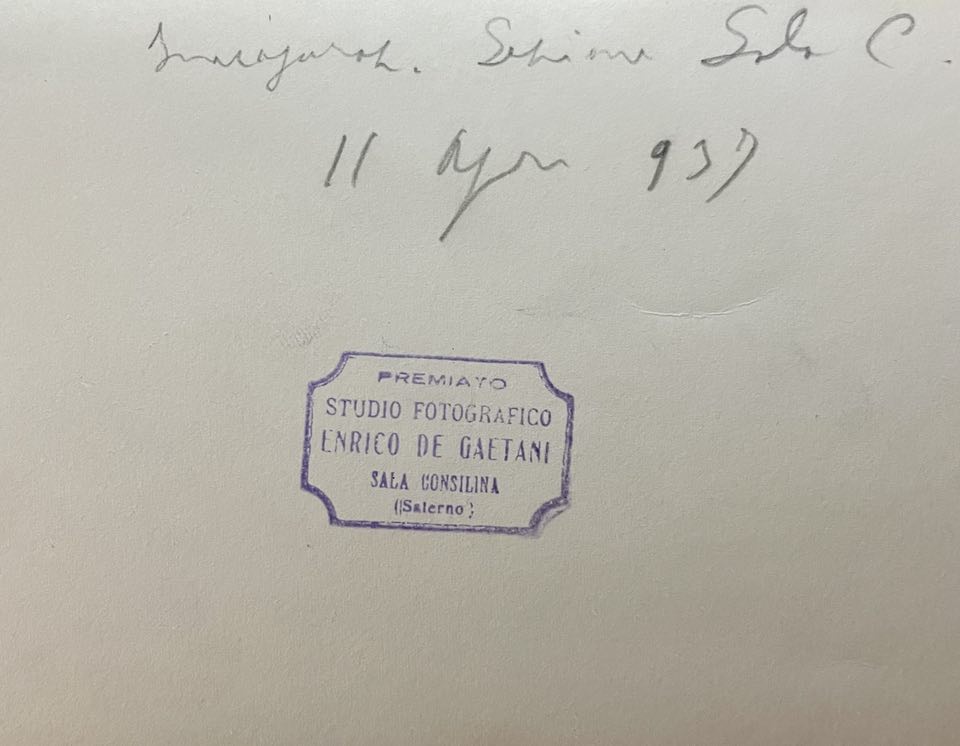 Sala C.
11 937
PREMIATO
STUDIO FOTOGRAFICO
ENRICO DE GAETANI
SALA CONSILINA
(Salerno)